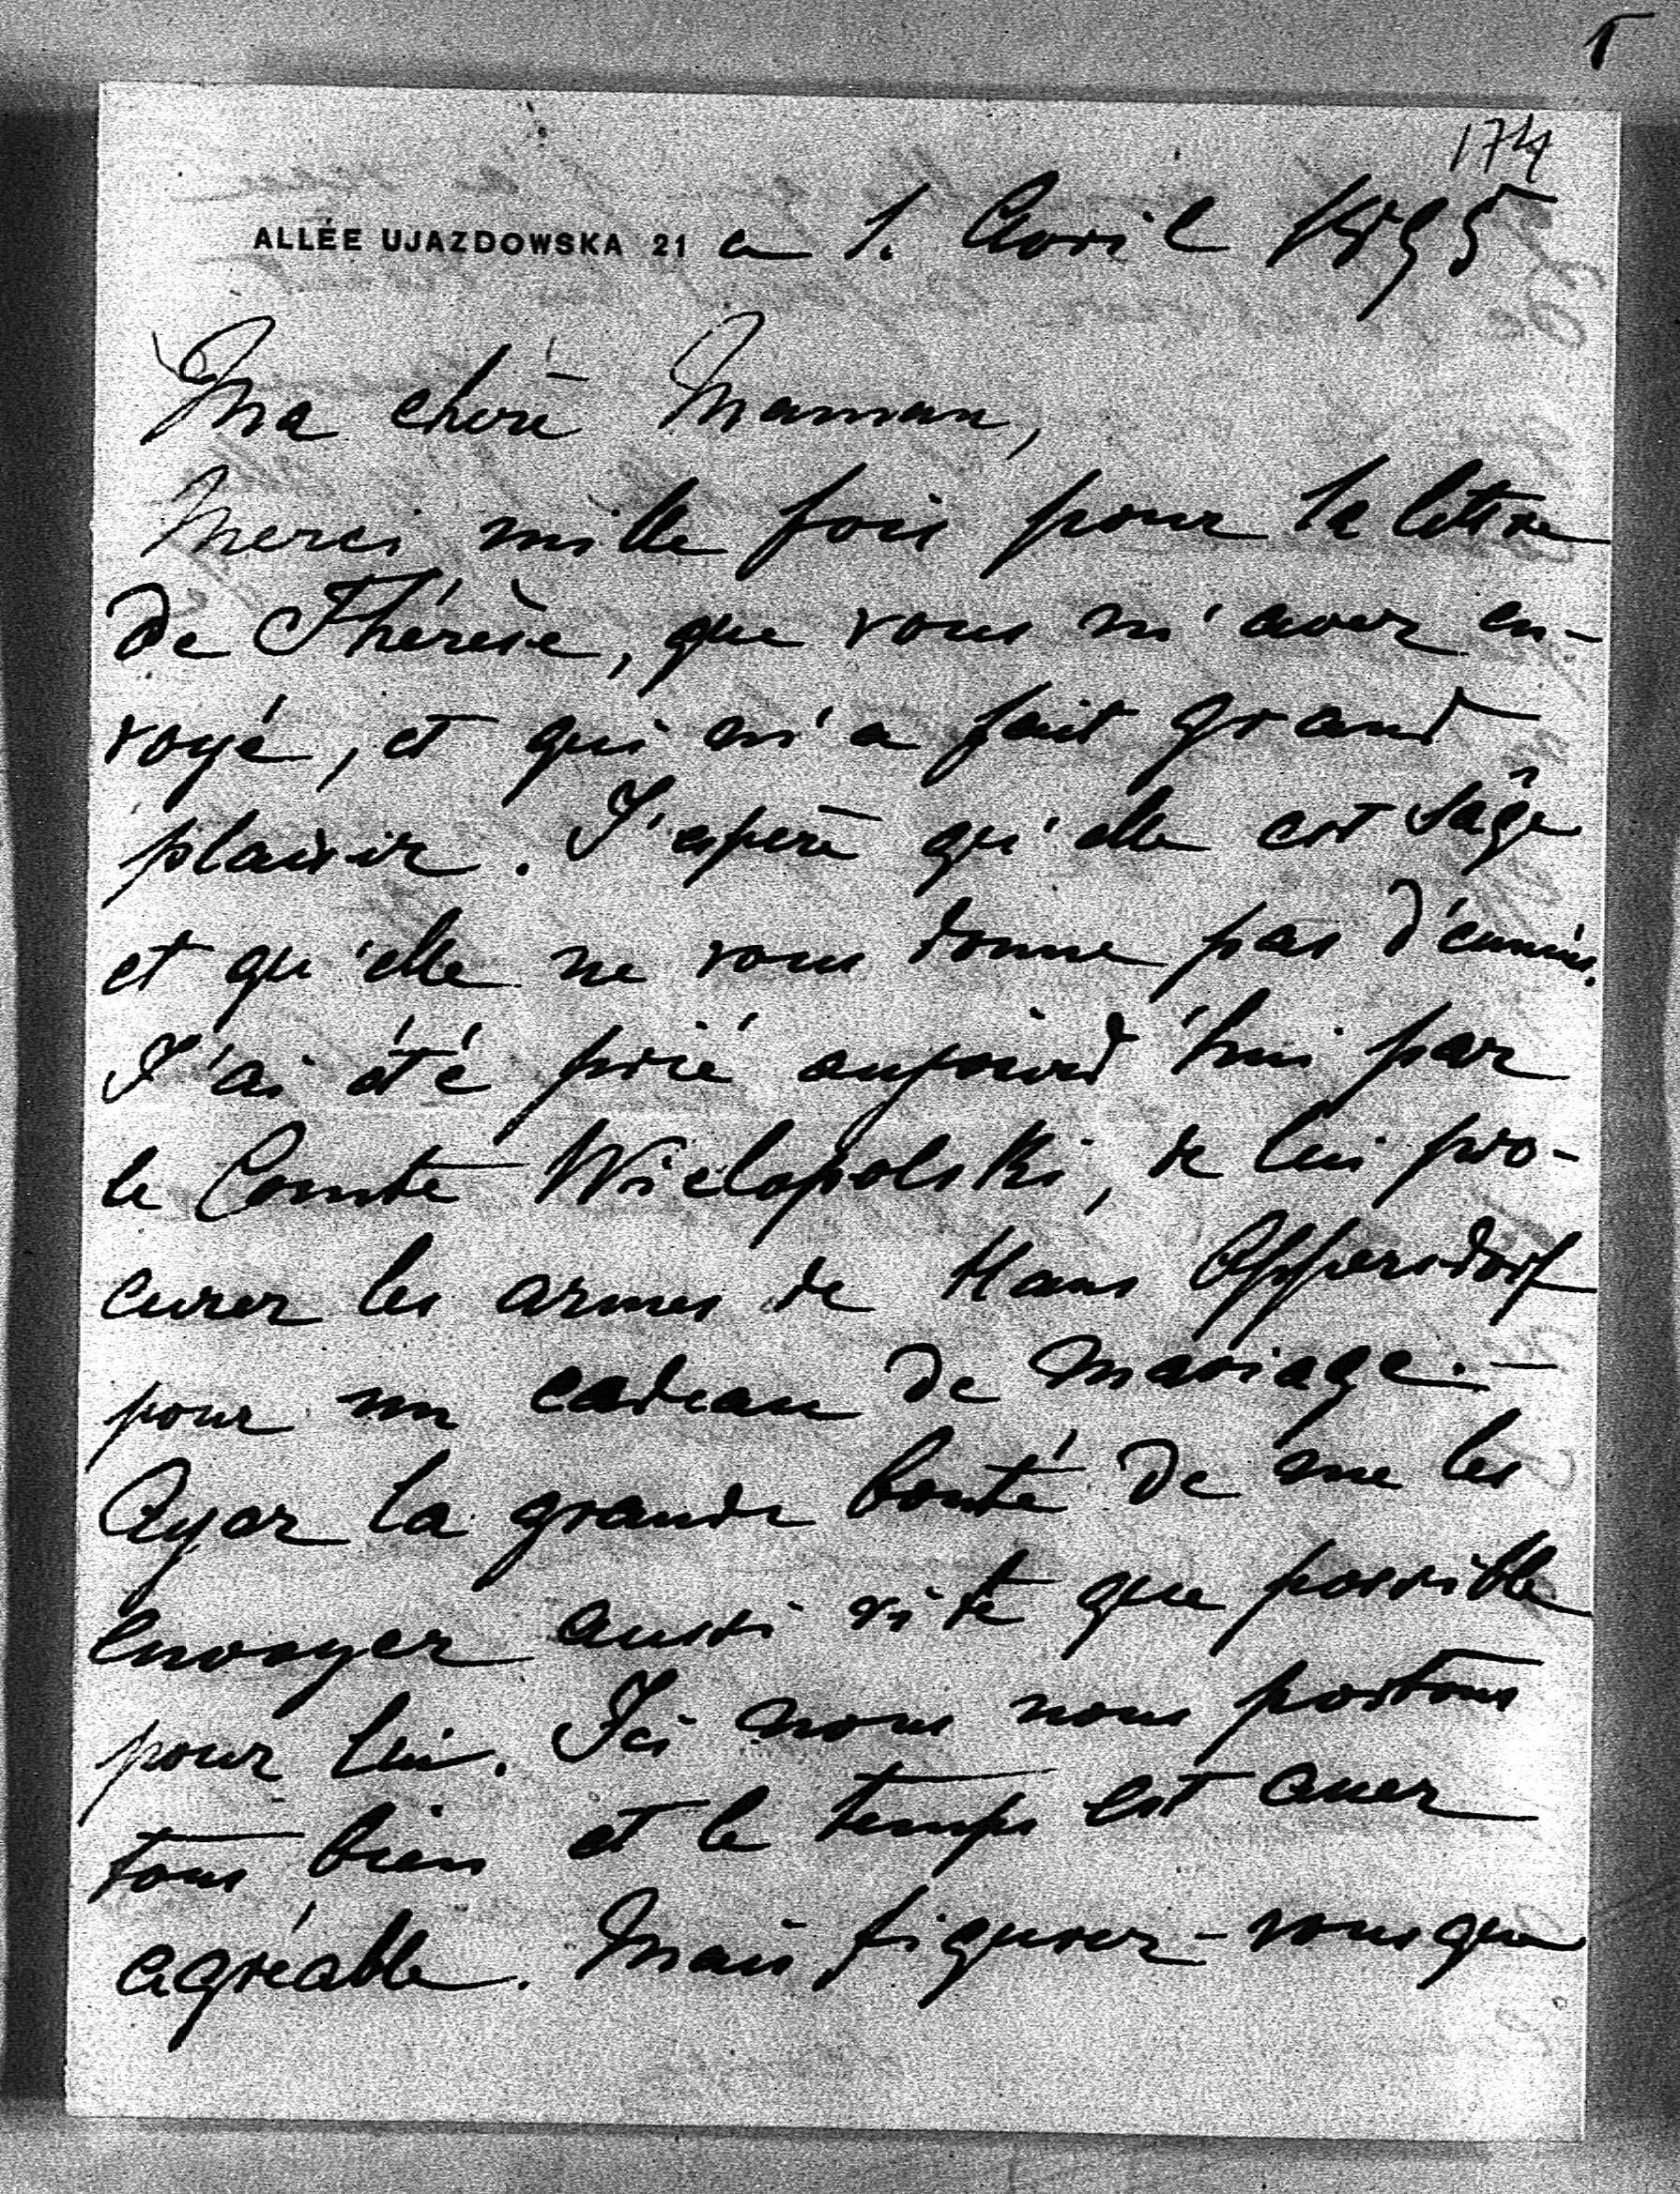 174
ALLÉE UJAZDOWSKA 21 1. Avril 1895
Ma chère Maman,
Merci mille fois pour la lettre
de Thérèse, que vous m'avez en-
voyé, et qui m'a fait grand
plaisir. J'espère qu'elle est sage
et qu'elle ne vous donne pas d'ennuis.
J'ai été prié aujourd'hui par
le Comte Wielopolski, de lui pro-
curer les armes de Hans Oppersdorf
pour un cadeau de mariage. —
Ayez la grande bonté de me les
envoyer aussi vite que possible
pour lui. Ici nous nous portons
tous bien et le temps est assez
agréable. Mais figurez-vous que